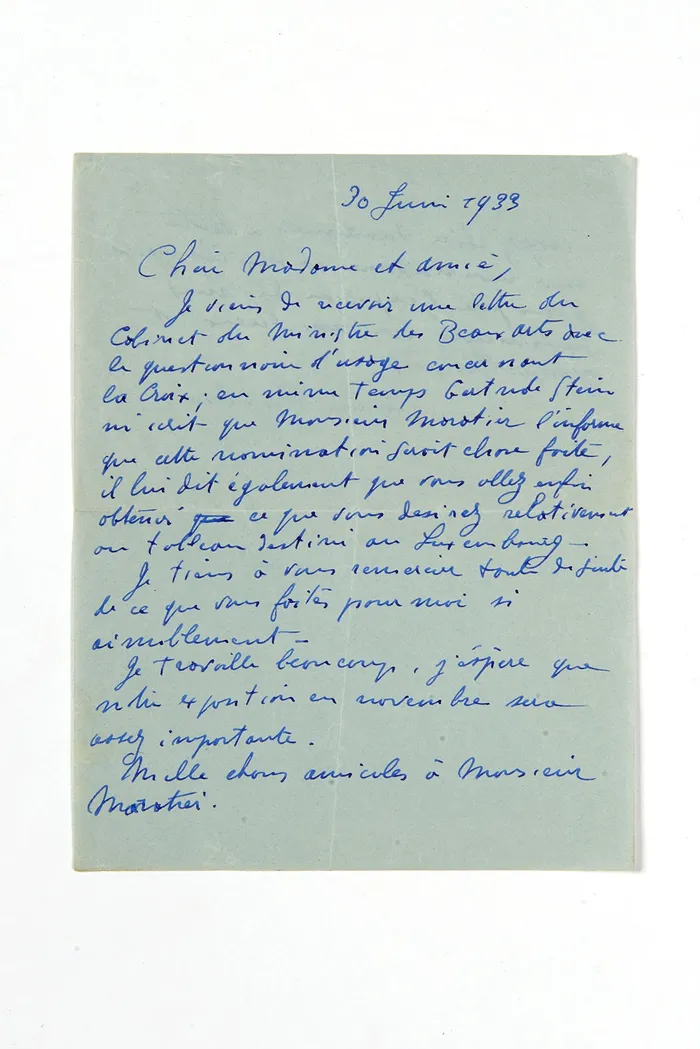 30 Juin 1933
Chère Madame et amie,
Je viens de recevoir une lettre du
Cabinet du Ministre des Beaux arts avec
le questionnaire d'usage concernant
la Croix; en même temps Gertrude Stein
m'écrit que Monsieur Moratier l'informe
que cette nomination serait chose faite,
il lui dit également que vous allez enfin
obtenir que ce que vous desirez relativement
au tableau destiné au Luxembourg –
Je tiens à vous remercier toute de suite
de ce que vous faites pour moi si
aimablement –
Je travaille beaucoup, j'éspère que
notre exposition en novembre sera
assez importante.
Mille choses amicales à Monsieur
Moratier.